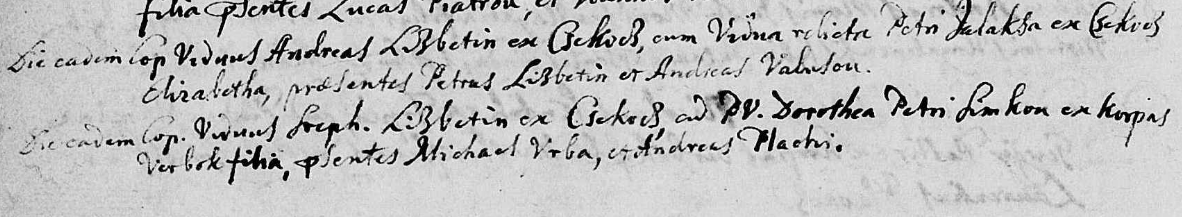 filia pſentes Lucas Piatrou, et
Die eadem Cop Viduus Andreas Lißbetin ex Csekocz, cum Vidua relicta Petri Jalakſa ex Csekocz
Elizabetha, præsentes Petrus Lißbetin et Andreas Valuſou.
Die eadem Cop. Viduus Steph. Lißbetin ex Csekocz, cū PV. Dorothea Petri Simkou ex Korpas
Verbok filia, pſentes Michael Vrba, et Andreas Plachi.